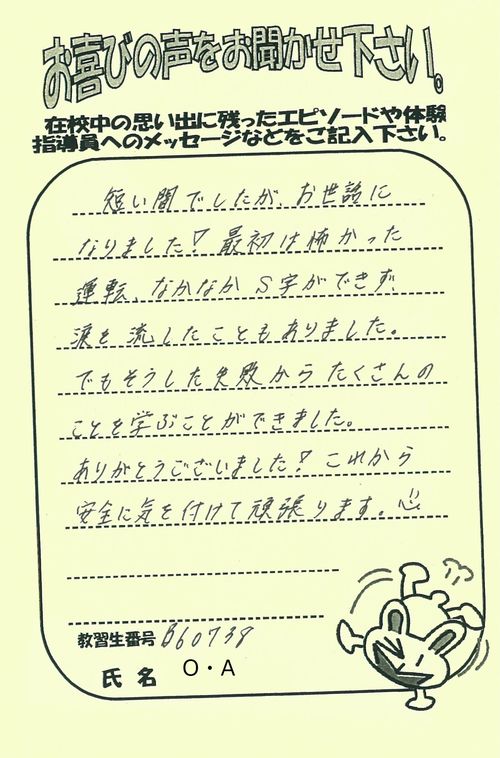 お喜びの声をお聞かせ下さい。
在校中の思い出に残ったエピソードや体験
指導員へのメッセージなどをご記入下さい。
短い間でしたが、お世話に
なりました! 最初は怖かった
運転、なかなかS字ができず、
涙を流したこともありました。
でもそうした失敗からたくさんの
ことを学ぶことができました。
ありがとうございました! これから
安全に気を付けて頑張ります。
教習生番号 B60738
氏名 O・A